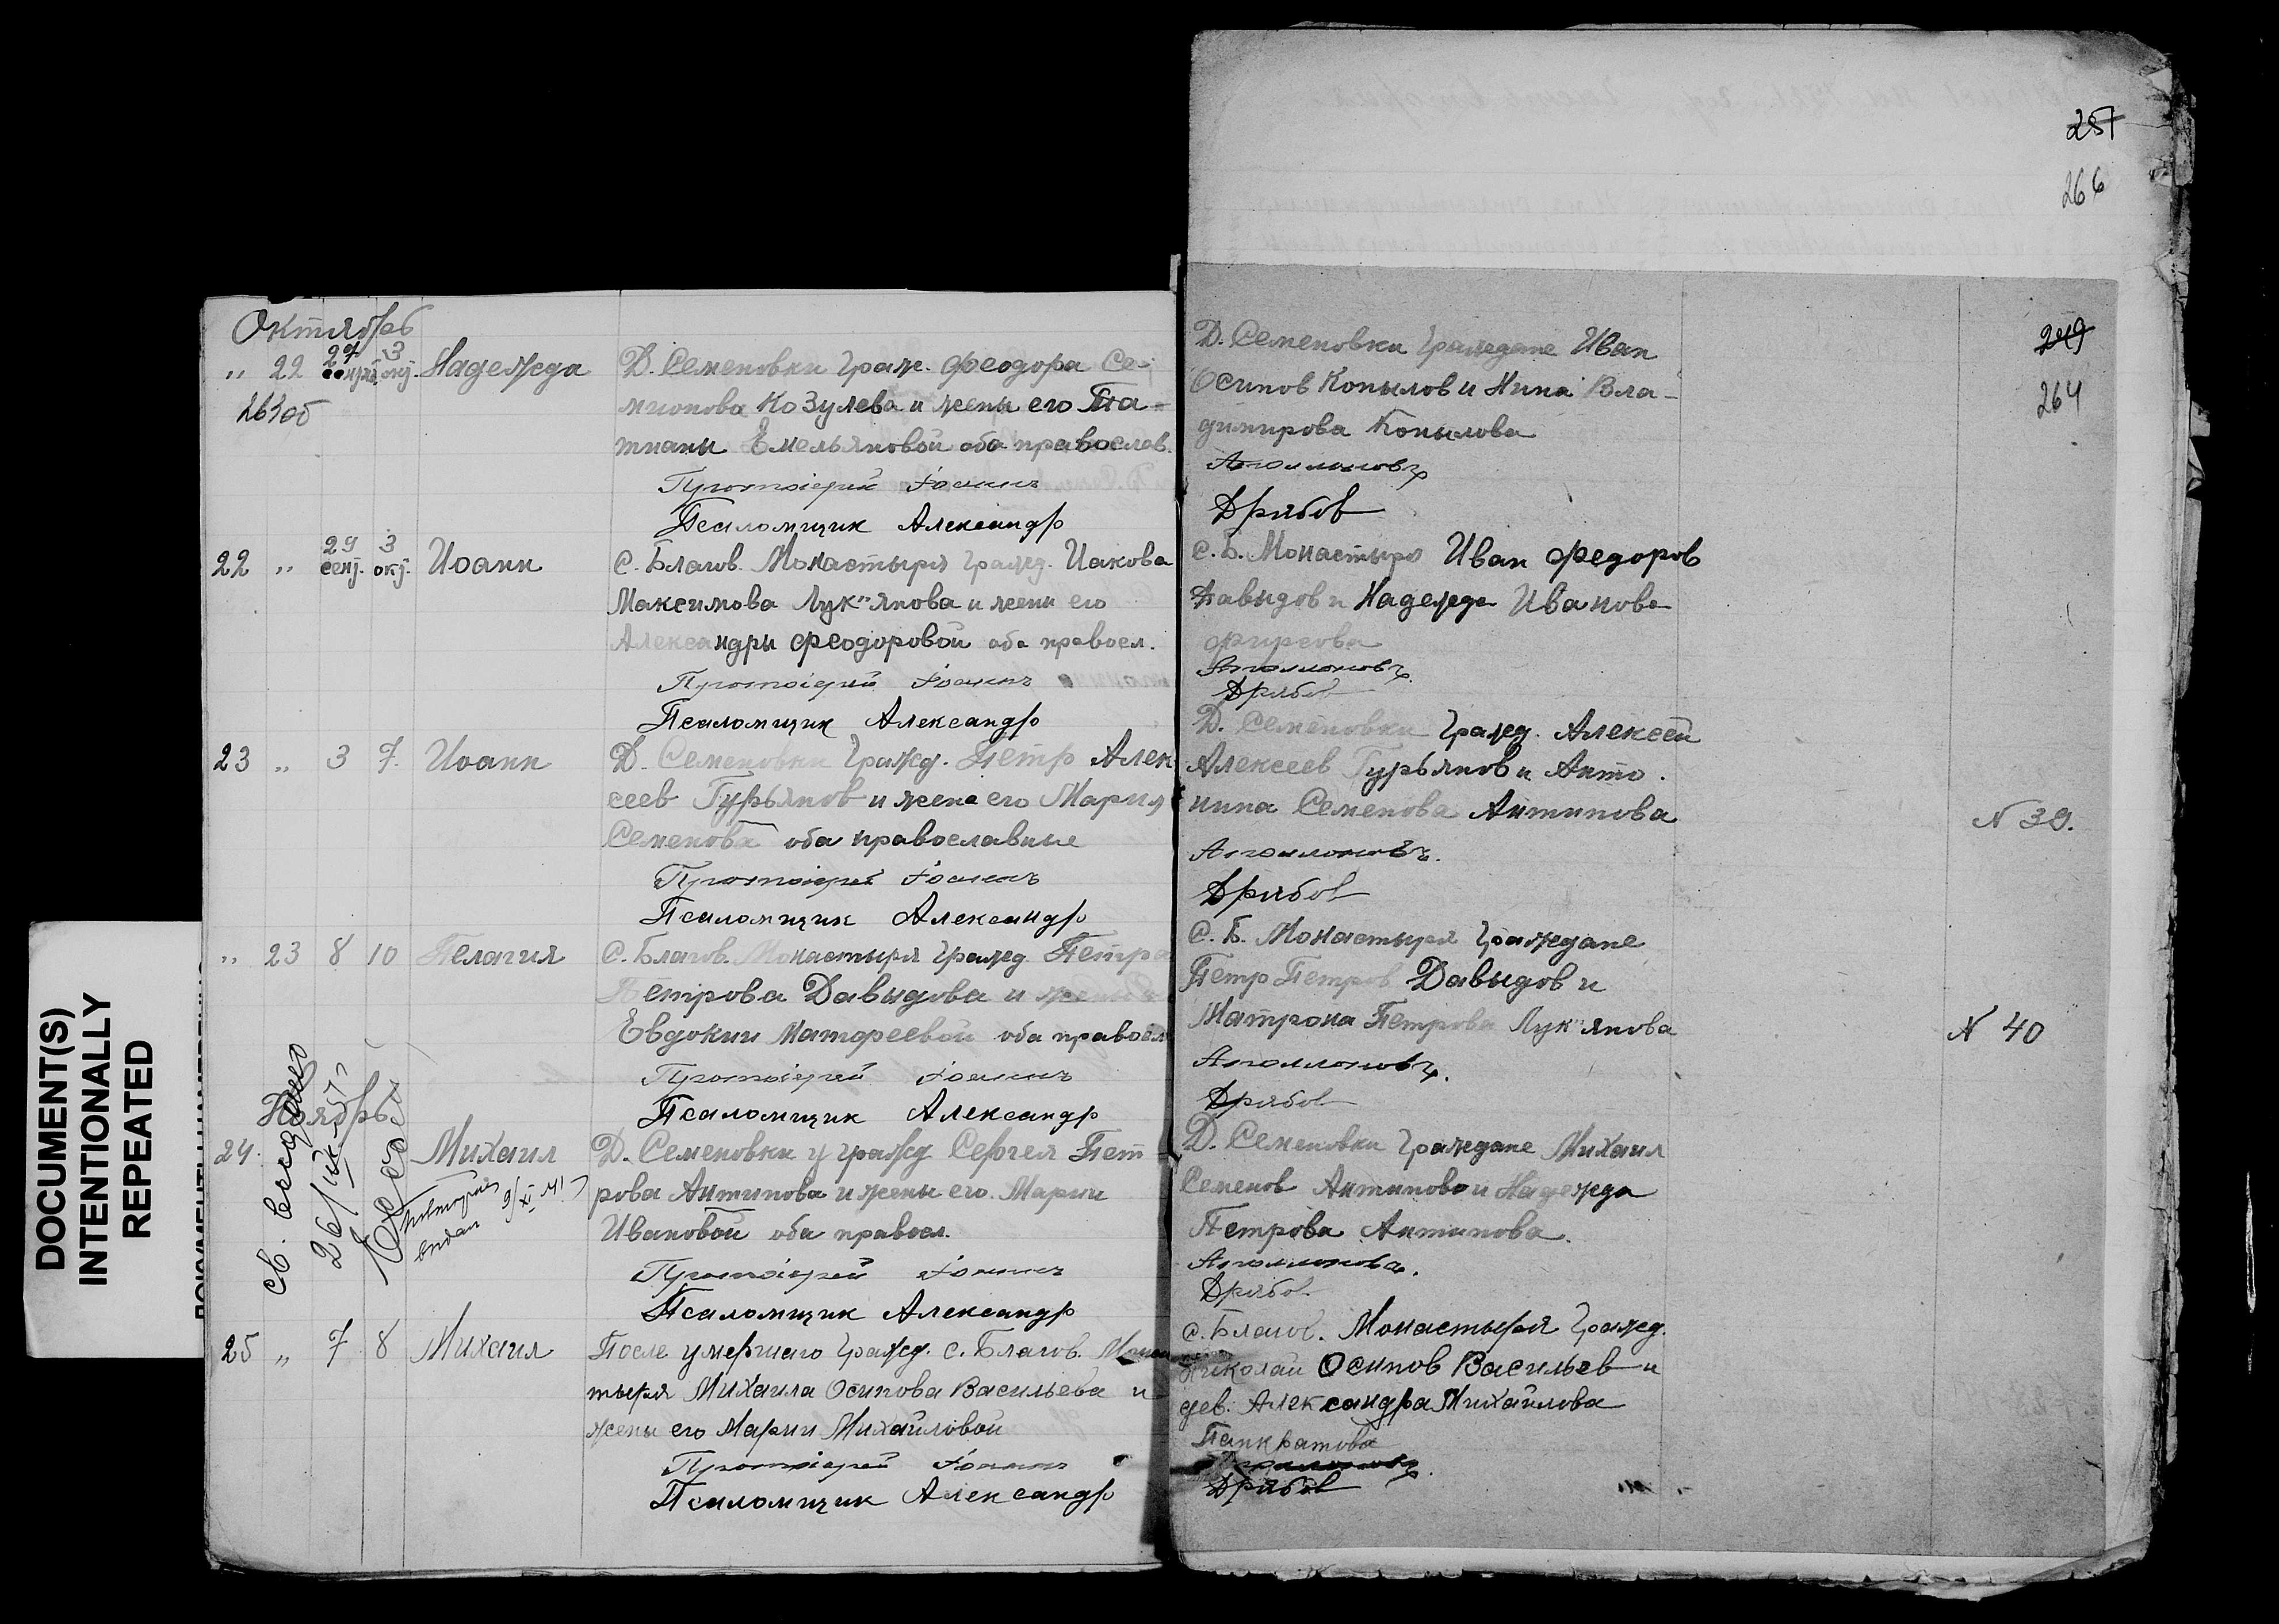 257
266
Октябрь
249
264
„ 22 27 сентяб. 3 окт. Надежда
263об
Д. Семеновки граж. Феодора Се-
мионова Козулева и жены его Та-
тианы Емельяновой оба православ.
Протоіерей Іоаннъ
Псаломщик Александр
Д. Семеновки граждане Иван
Осипов Копылов и Нина Вла-
димирова Копылова
Аполлоновъ
Дрябов
22 „ 29 сент. 3 окт. Иоанн
С. Благов. Монастыря гражд. Иакова
Максимова Лук"янова и жены его
Александры Феодоровой оба правосл.
Протоіерей Іоаннъ
Псаломщик Александр
С. Б. Монастыря Иван Федоров
Давыдов и Надежда Иванова
Фирсова
Аполлоновъ.
Дрябов
23 „ 3 7. Иоанн
Д. Семеновки гражд. Петр Алек
сеев Гурьянов и жена его Мария
Семенова оба православные
Протоіерей Іоаннъ
Псаломщик Александр
Д. Семеновки гражд. Алексей
Алексеев Гурьянов и Анто-
нина Семенова Антипова
N 39.
Аполлоновъ.
Дрябов
„ 23 8 10 Пелагия
С. Благов. Монастыря гражд. Петра
Петрова Давыдова и жены
Евдокии Матфеевой оба правосл
Протоіерей Іоаннъ
Псаломщик Александр
С. Б. Монастыря граждане
Петр Петров Давыдов и
Матрона Петрова Лук"янова
N 40
Аполлоновъ.
Дрябов
Ноябрь
24. Михаил
Д. Семеновки у гражд Сергея Пет-
рова Антипова и жены его Марии
Ивановой оба правосл.
Протоіерей Іоаннъ
Псаломщик Александр
св.
выдан 9/XI 41
Д. Семеновки граждане Михаил
Семенов Антипов и Надежда
Петрова Антипова.
Аполлоновъ.
Дрябов.
25 „ 7 8 Михаил
После умершаго гражд. с. Благов. Монас
тыря Михаила Осипова Васильева и
жены его Марии Михайловой
Протоіерей Іоаннъ
Псаломщик Александр
с. Благов. Монастыря гражд.
Николай Осипов Васильев и
дев. Александра Михайлова
Панкратова
Аполлоновъ.
Дрябов
DOCUMENT(S)
INTENTIONALLY
REPEATED